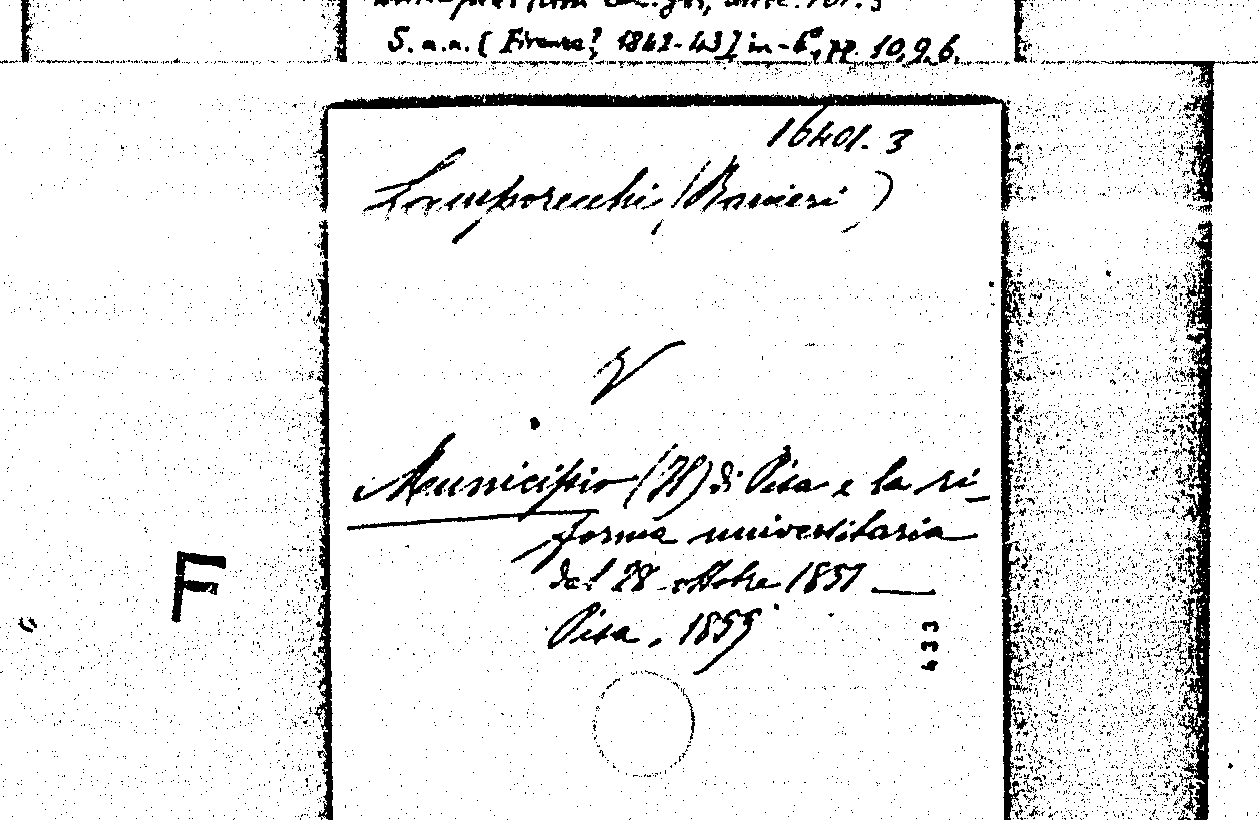 S. n. n. [Firenze?, 1842-43] in-6°, pp. 10, 9, 6.
16401. 3
Lamporecchi (Ranieri)
V
Municipio (Il) di Pisa e la ri-
forma universitaria
del 28 ottobre 1851 —
Pisa, 1859
433
F